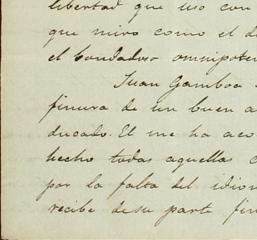 libertad que uso con
que miro como el d
el bondadoso omnipoten
Juan Gamboa
finura de un buen a
ducado. El me ha aco
hecho todas aquellas c
por la falta del idion
recibe de su parte fin